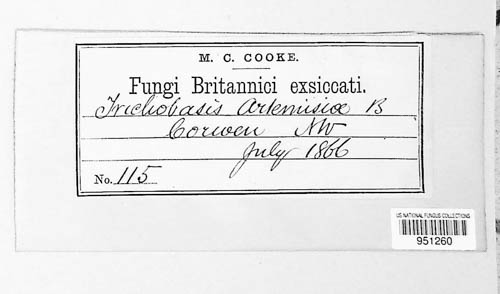 M. C. COOKE.
Fungi Britannici exsiccati.
Trichobasis Artemisiæ B
Corwen NW
July 1866
No. 115
US NATIONAL FUNGUS COLLECTIONS
951260